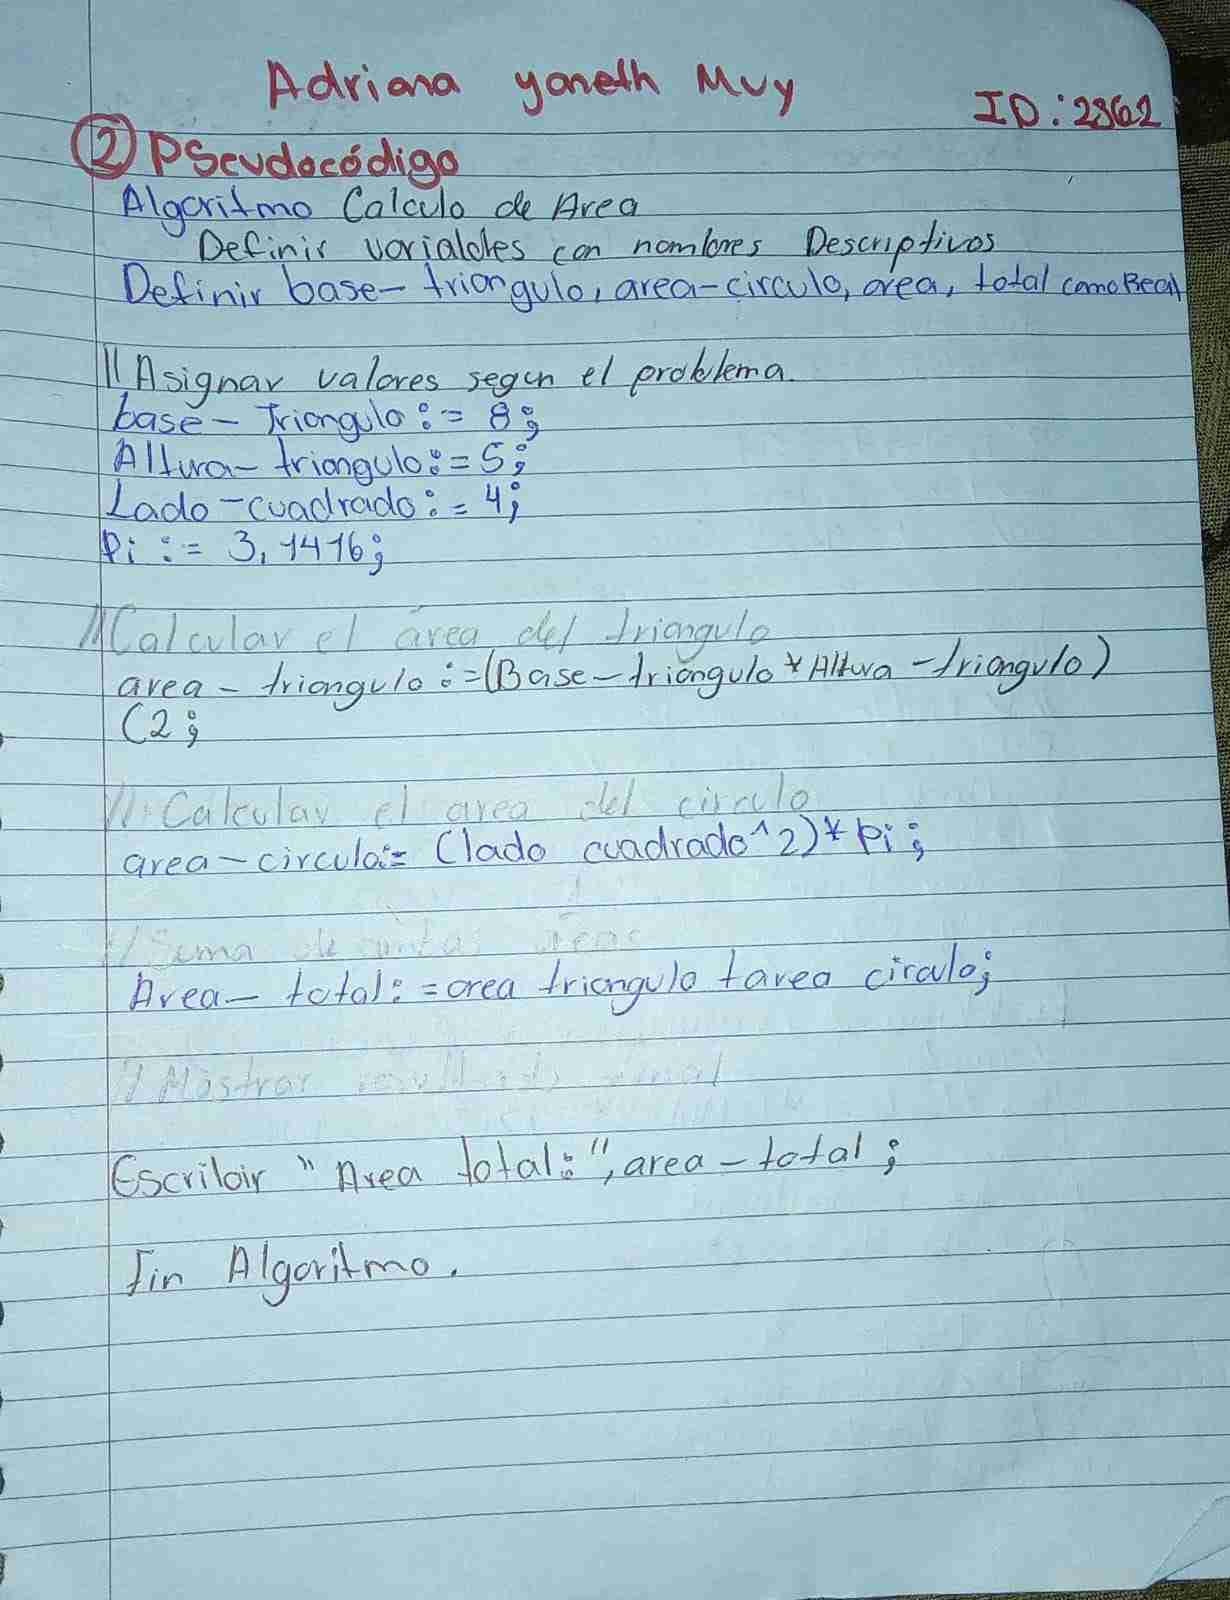 Adriana yaneth Muy
ID: 2362
② PSeudocódigo
Algoritmo Calculo de Area
Definir variables con nombres Descriptivos
Definir base-triangulo, area-circulo, area, total como Real
// Asignar valores segun el problema.
base-Triangulo := 8;
Altura-triangulo := 5;
Lado-cuadrado := 4;
Pi := 3,1416;
//Calcular el área del triangulo
area-triangulo := (Base-triangulo * Altura-triangulo)
(2;
// Calcular el area del circulo
area-circulo:= (lado cuadrado^2)* Pi;
// Suma de
Area-total: =area triangulo + area circulo;
// Mostrar
Escribir "Area total:", area-total;
Fin Algoritmo.